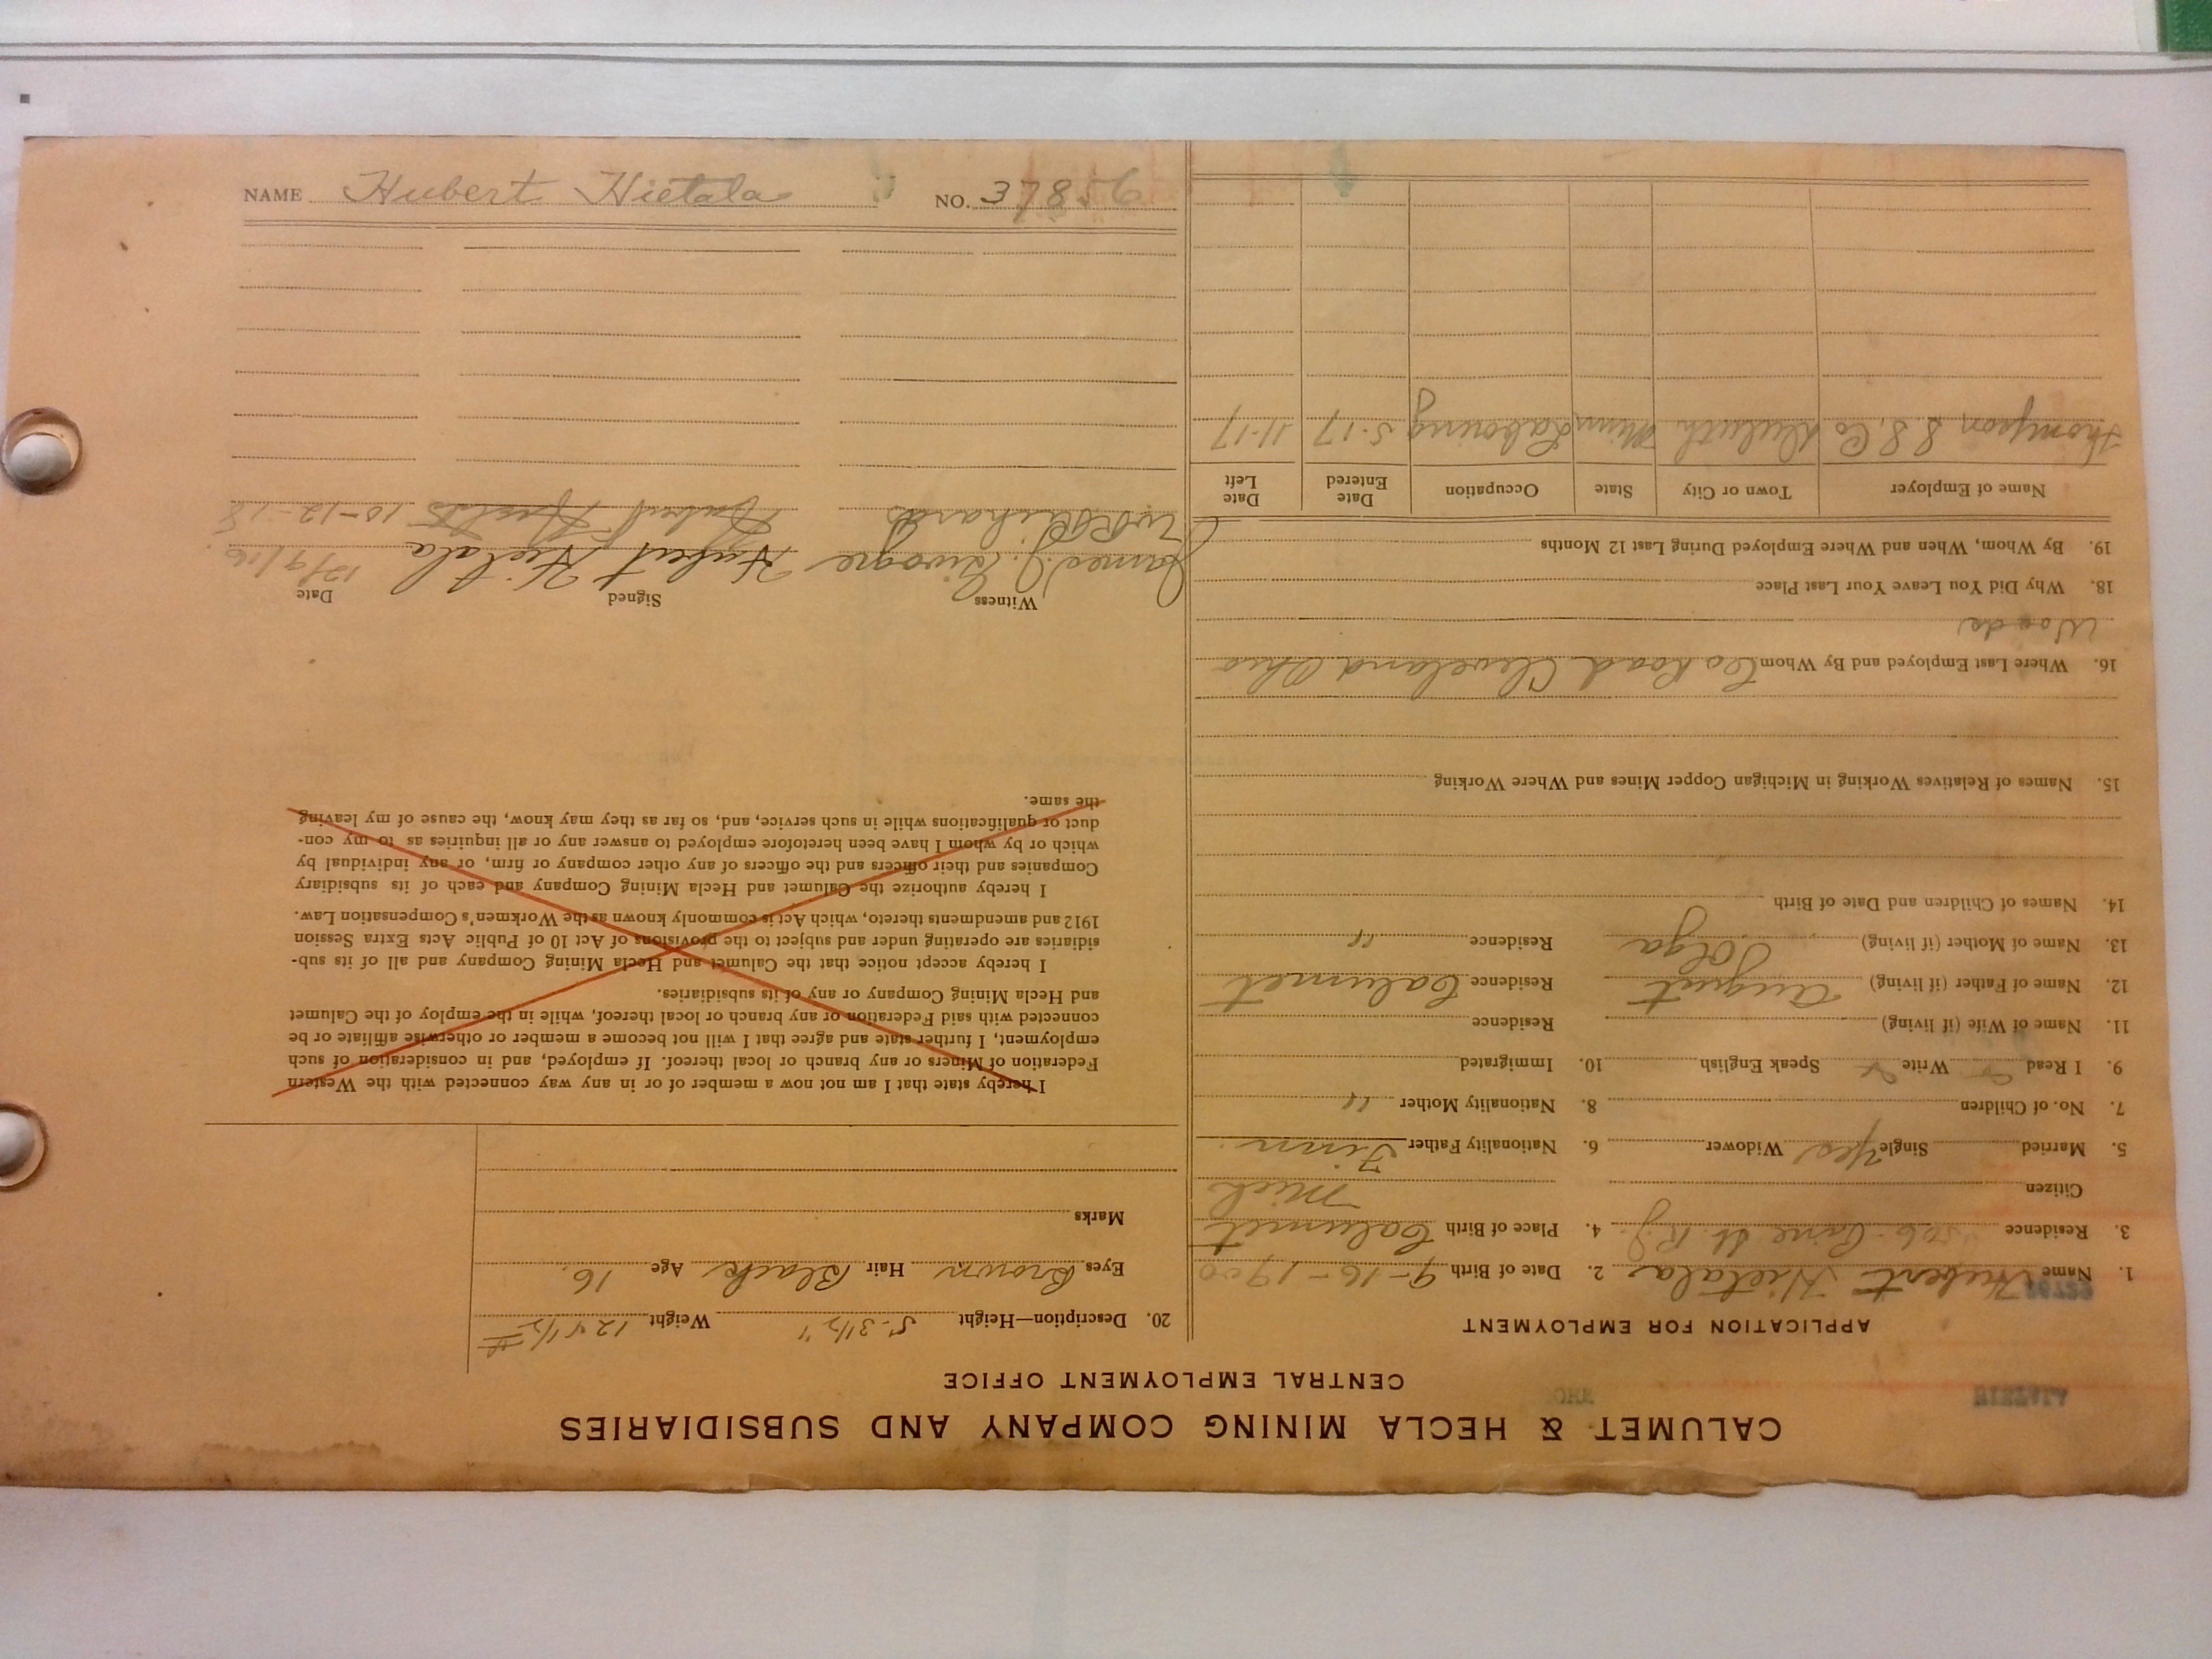 CALUMET & HECLA MINING COMPANY AND SUBSIDIARIES
CENTRAL EMPLOYMENT OFFICE
APPLICATION FOR EMPLOYMENT
1. Name Hubert Hietala 2. Date of Birth 9-16-1900
3. Residence Pine St. R.J. 4. Place of Birth Calumet
Citizen Mich
5. Married Single Yes Widower 6. Nationality Father Finn
7. No. of Children 8. Nationality Mother "
9. I Read Write Speak English 10. Immigrated
11. Name of Wife (if living) Residence
12. Name of Father (if living) August Residence Calumet
13. Name of Mother (if living) Residence "
14. Names of Children and Date of Birth
15. Names of Relatives Working in Michigan Copper Mines and Where Working
16. Where Last Employed and By Whom Co Road Cleveland Ohio
Woods
18. Why Did You Leave Your Last Place
19. By Whom, When and Where Employed During Last 12 Months
Name of Employer Town or City State Occupation Date Entered Date Left
Thompson S.S. Co Duluth Minn Laboring 5-17 11-17
20. Description—Height 5-3 1/2" Weight 124 1/2 #
Eyes Brown Hair Black Age 16
Marks
I hereby state that I am not now a member of or in any way connected with the Western
Federation of Miners or any branch or local thereof. If employed, and in consideration of such
employment, I further state and agree that I will not become a member or otherwise affiliate or be
connected with said Federation or any branch or local thereof, while in the employ of the Calumet
and Hecla Mining Company or any of its subsidiaries.
I hereby accept notice that the Calumet and Hecla Mining Company and all of its sub-
sidiaries are operating under and subject to the provisions of Act 10 of Public Acts Extra Session
1912 and amendments thereto, which Act is commonly known as the Workmen's Compensation Law.
I hereby authorize the Calumet and Hecla Mining Company and each of its subsidiary
Companies and their officers and the officers of any other company or firm, or any individual by
which or by whom I have been heretofore employed to answer any or all inquiries as to my con-
duct or qualifications while in such service, and, so far as they may know, the cause of my leaving
the same.
Witness Signed Date
James J. Hubert Hietala 12/9/16
Hubert 10-12-18
NAME Hubert Hietala NO. 37856